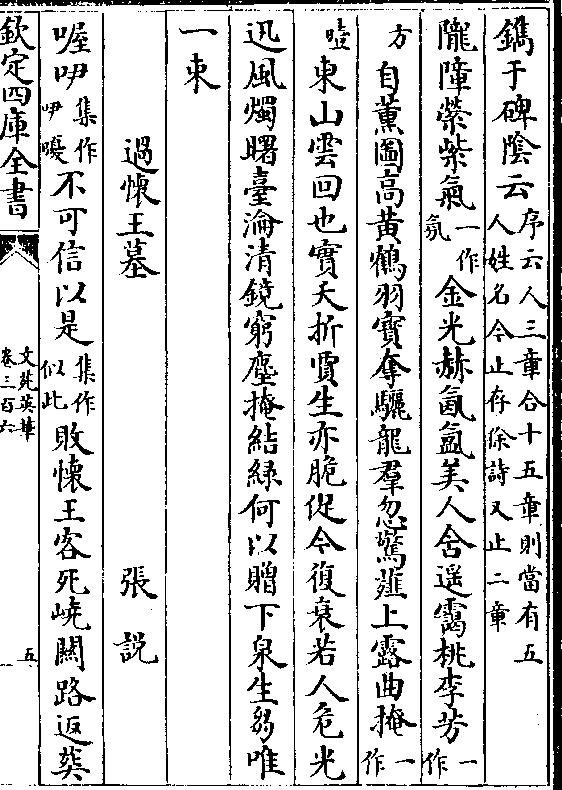 鐫于碑陰云序云人三章合十五章則當有五
人姓名今止存徐詩又止二章
隴障縈紫氣一作氛金光赫氤氲美人舍遥靄桃李芳一作
方自薰圖高黄鶴羽寳奪驪龍羣忽驚薤上露曲掩一作
曀東山雲回也實夭折賈生亦脆促今復衰若人危光
迅風燭曙臺淪清鏡窮塵掩結緑何以贈下泉生芻唯
一束
過懐王墓
張説
喔咿集作咿嚘不可信以是集作似此敗懐王客死嶢闗路返葬
欽定四庫全書
文苑英華
卷三百六
五